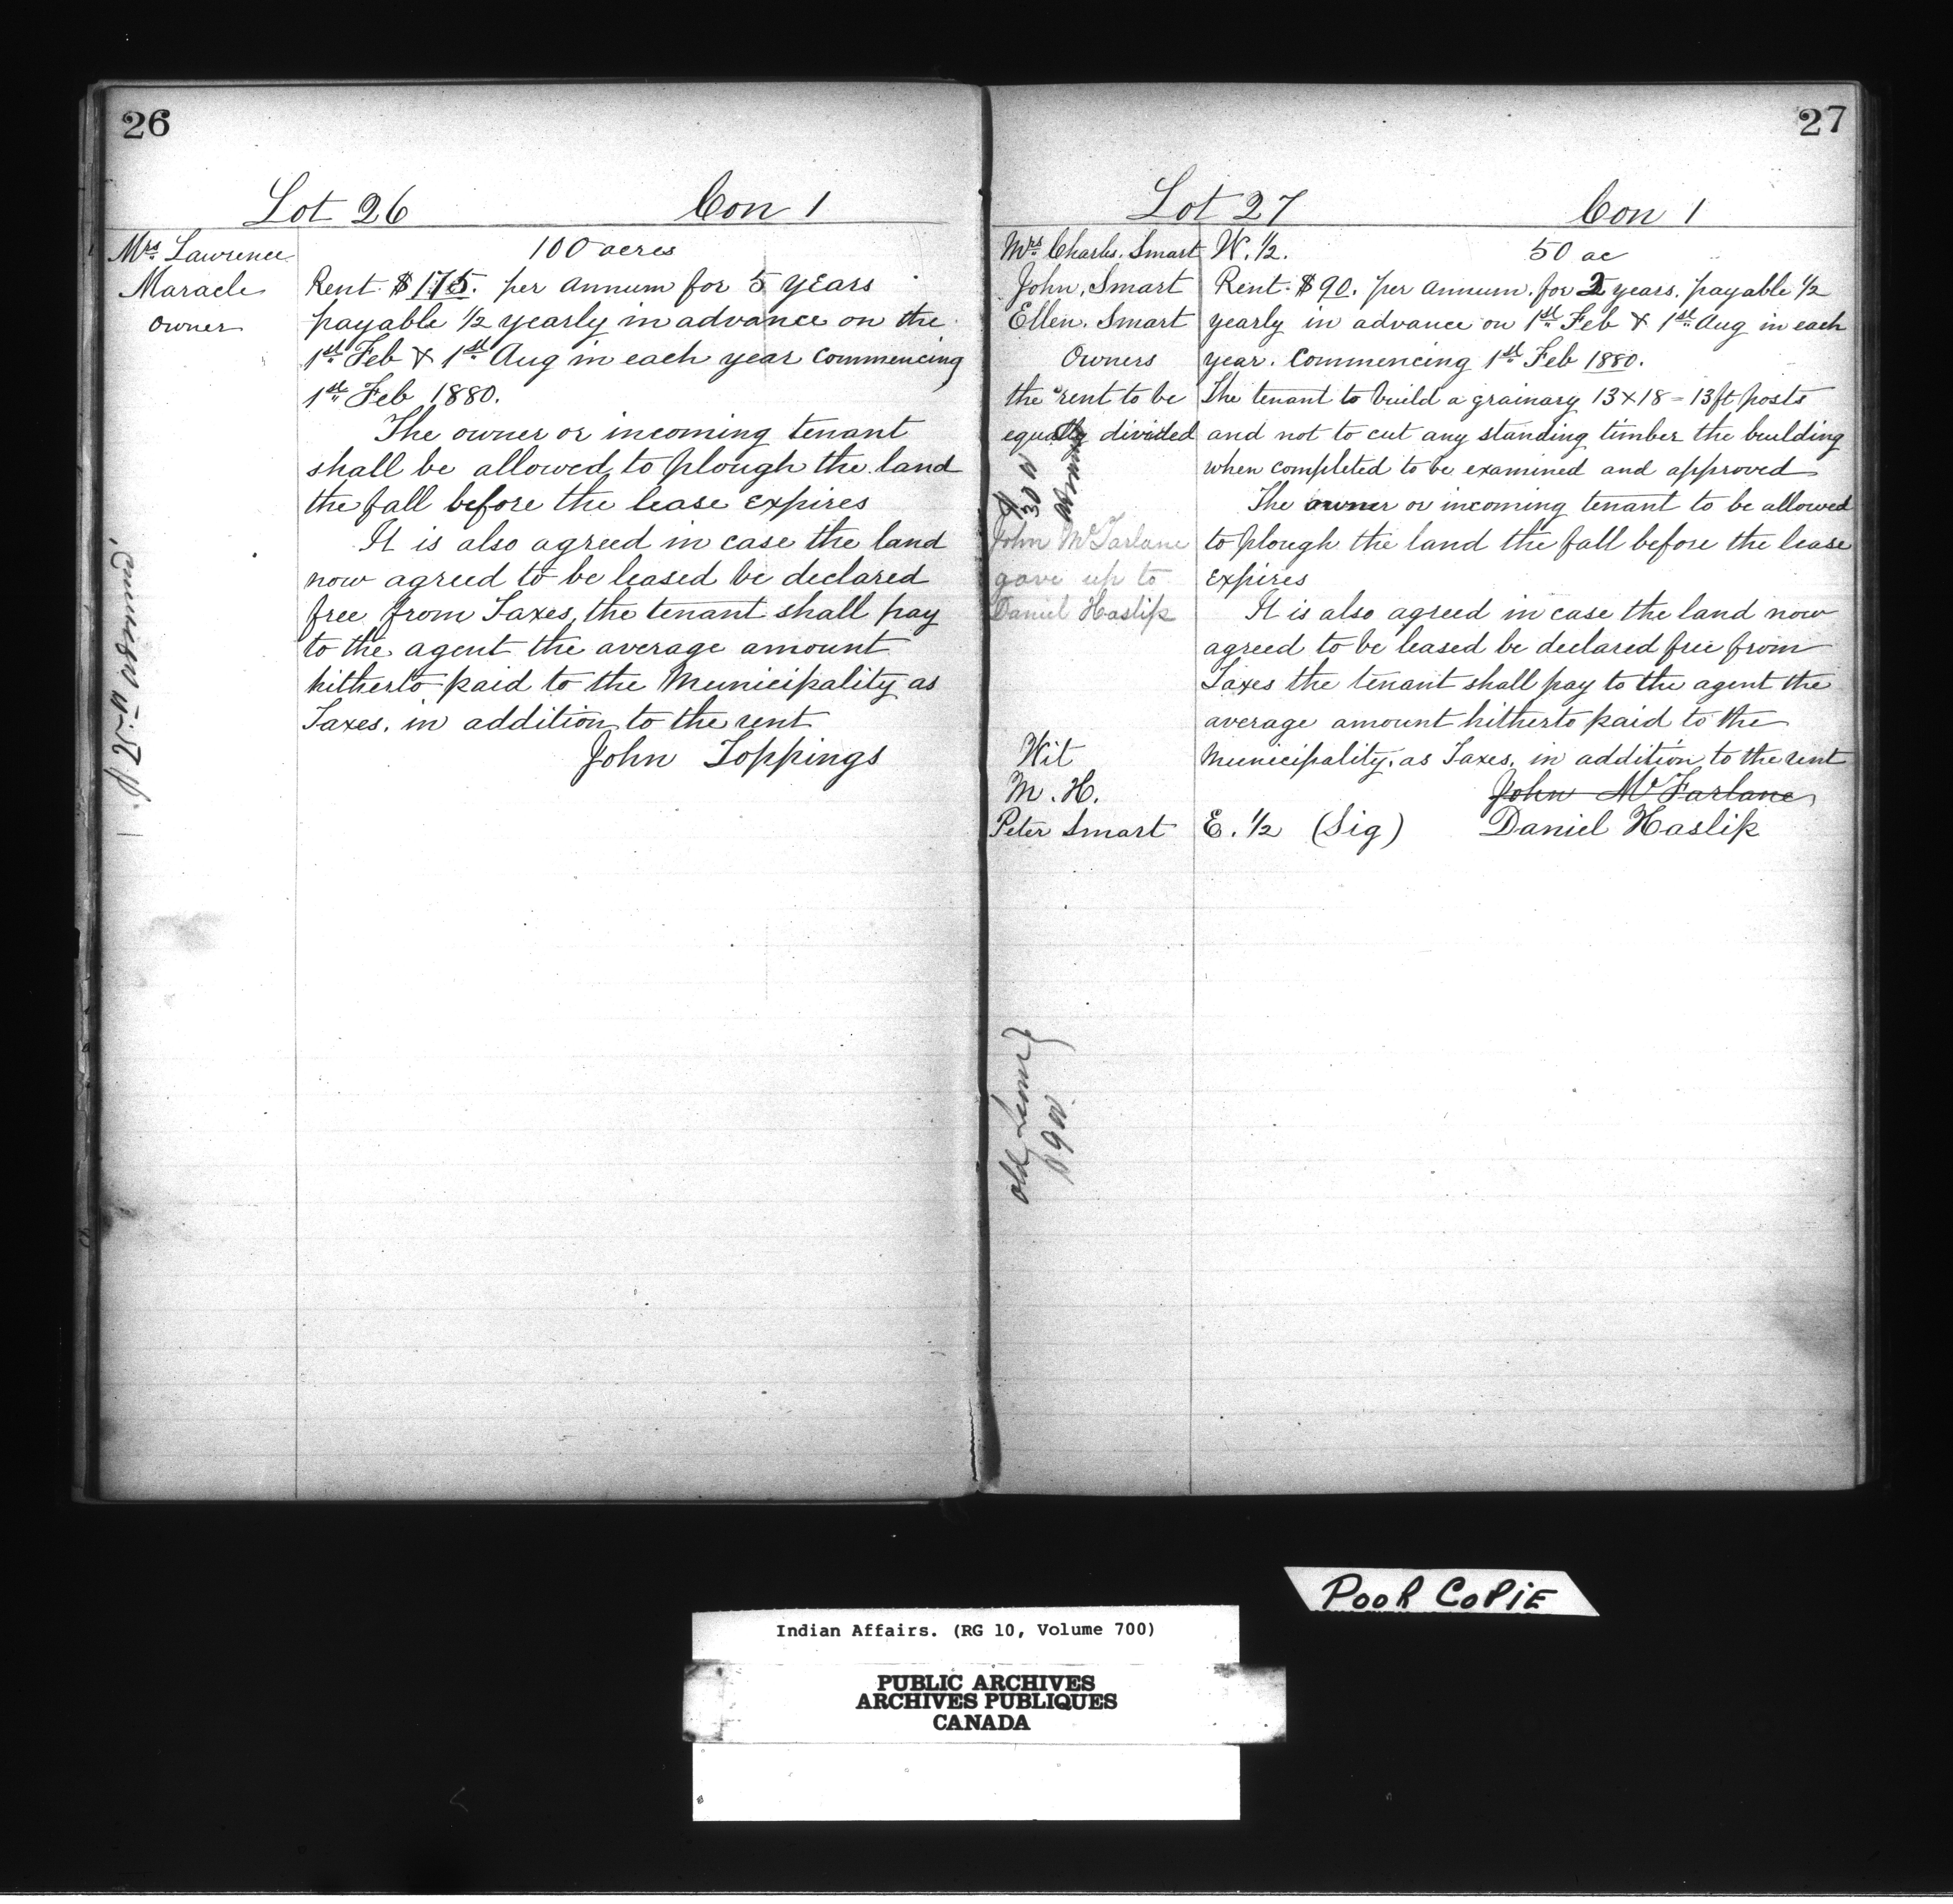 26
Lot 26 Con 1
Mrs. Lawrence
Maracle
owner
100 acres
Rent. $175. per annum for 5 years
payable 1/2 yearly in advance on the
1st Feb & 1st Aug in each year commencing
1st Feb 1880.
The owner or incoming tenant
shall be allowed to plough the land
the fall before the lease expires
It is also agreed in case the land
now agreed to be leased be declared
free from Taxes, the tenant shall pay
to the agent the average amount
hitherto paid to the Municipality as
Taxes. in addition to the rent
John Toppings
27
Lot 27 Con 1
Mrs Charles. Smart
John. Smart
Ellen. Smart
Owners
the rent to be
equally divided
John McFarlane
gave up to
Daniel Haslip
Wit
M. H.
Peter Smart
W. 1/2. 50 ac
Rent. $90. per annum. for 2 years. payable 1/2
yearly in advance on 1st Feb & 1st Aug in each
year. Commencing 1st Feb 1880.
The tenant to build a grainary 13 x 18 = 13 ft posts
and not to cut any standing timber the building
when completed to be examined and approved
The owner or incoming tenant to be allowed
to plough the land the fall before the lease
expires
It is also agreed in case the land now
agreed to be leased be declared free from
Taxes the tenant shall pay to the agent the
average amount hitherto paid to the
Municipality. as Taxes. in addition to the rent
John McFarlane
E. 1/2 (Sig) Daniel Haslip
POOR COPIE
Indian Affairs. (RG 10, Volume 700)
PUBLIC ARCHIVES
ARCHIVES PUBLIQUES
CANADA